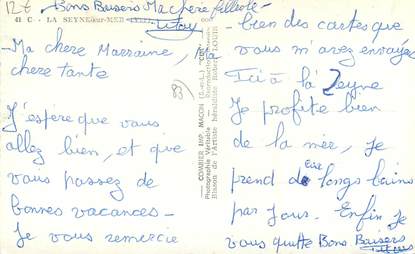 12 E
Bons Baisers Ma chère filleule
Titou
41 C - LA SEYNE-sur-MER
- Ma chere Marraine, Ma
chere tante
J'espère que vous
allez bien, et que
vous passez de
bonnes vacances -
Je vous remercie
83
COMBIER IMP. MACON (S.-et-L.) "CIM"
Photographie Véritable - Reproduction interdite
Blason de l'Artiste héraldiste Robert LOUIS
- bien des cartes que
vous m'avez envoyées
Ici à la Zeyne
Je profite bien
de la mèr, Je
prend de longs bains
par jours. Enfin Je
vous quitte Bons Baisers
Titou